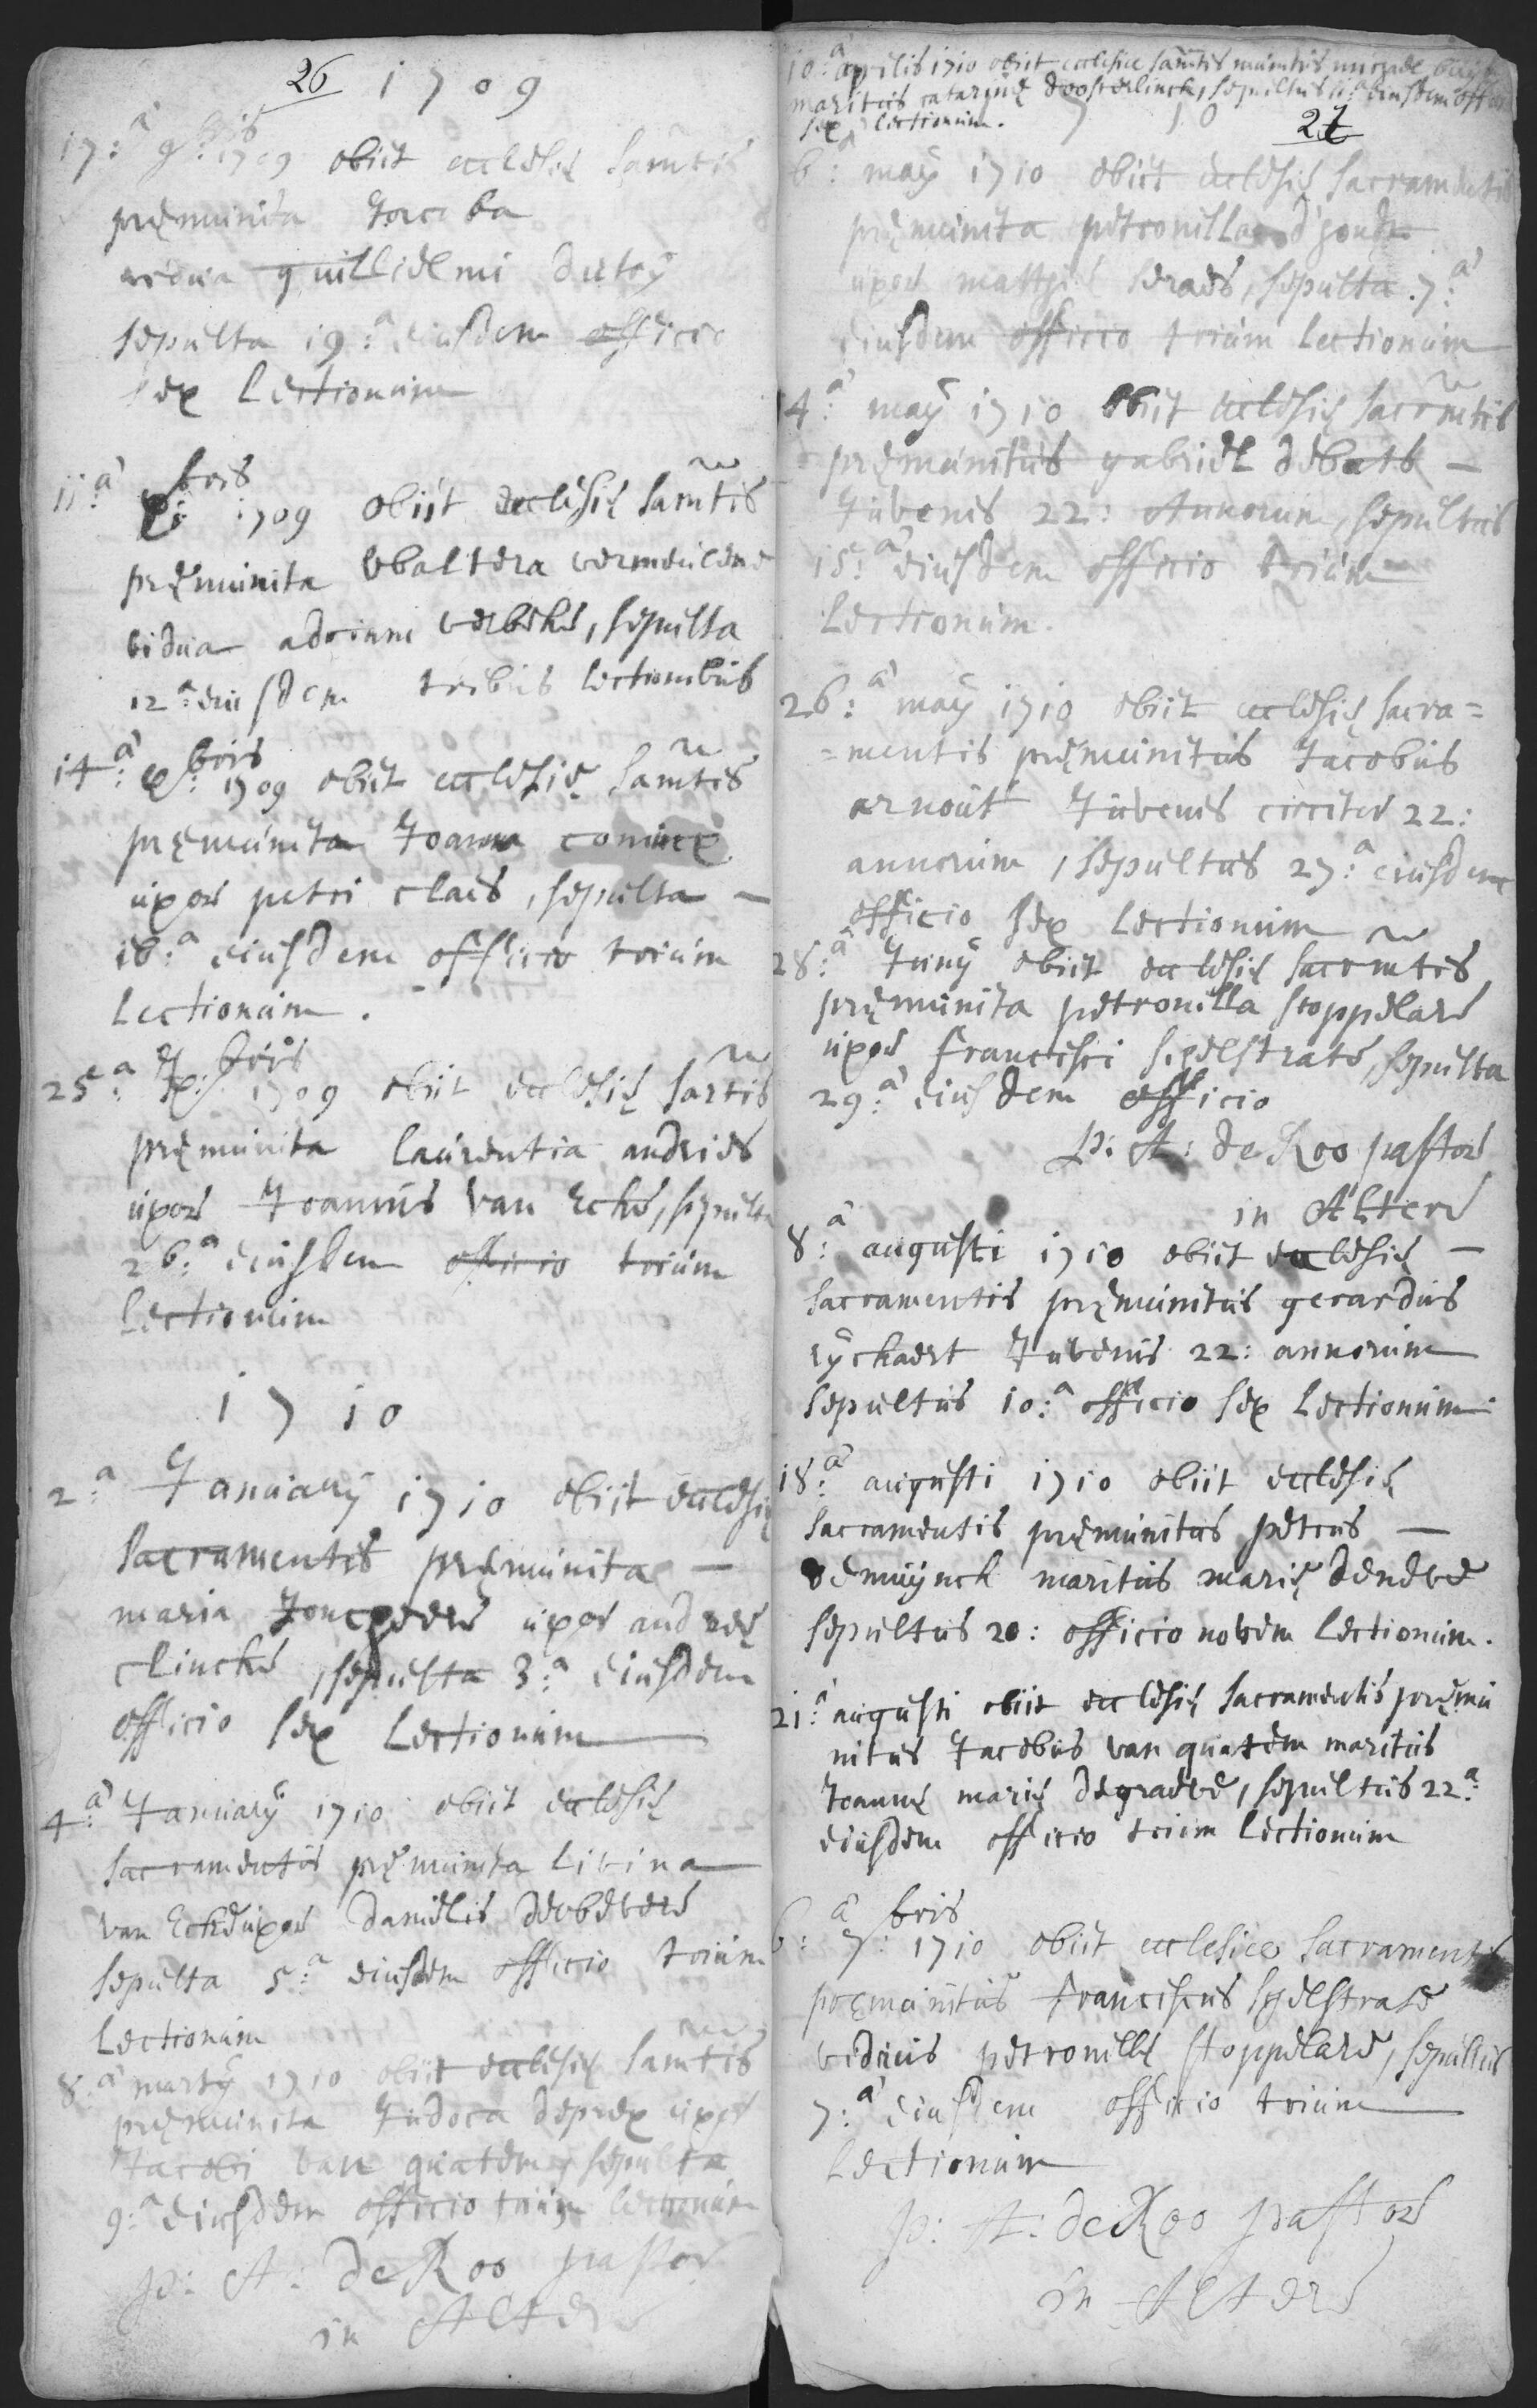 26 1709
17:ª 9:bris 1709 obiit ecclesię sam̃tis
pręmunita Jacoba
vidua guillielmi
sepulta 19:ª eiusdem officio
sex lectionum
11:ª x:bris 1709 obiit ecclesię sam̃tis
pręmunita Wbaltera vermeulene
vidua adriani verbeke, sepulta
12:ª eiusdem tribus lectionibus
14:ª x:bris 1709 obiit ecclesię sam̃tis
pręmunita Joanna
uxor petri claes, sepulta —
16:ª eiusdem officio trium
lectionum.
25:ª x:bris 1709 obiit ecclesię sam̃tis
pręmunita laurentia andries
uxor Joannis van Ecke, sepulta
26:ª eiusdem officio trium
lectionum
1710
2:ª Januarÿ 1710 obiit ecclesię
sacramentis pręmunita —
maria uxor andreę
clincke, sepulta 3:ª eiusdem
officio sex lectionum
4:ª Januarÿ 1710 obiit ecclesię
sacramentis pręmunita livina
van Ecke uxor danielis
sepulta 5:ª eiusdem officio trium
lectionum
8:ª martÿ 1710 obiit ecclesię sam̃tis
pręmunita Judoca deprex uxor
Jacobi van quatem, sepulta
9:ª eiusdem officio trium lectionum
p: A: de Roo pastor
in Alter
10:ª aprilis 1710 obiit ecclesiæ sam̃tis munitus
maritus catarinę doosterlinck, sepultus 11:ª eiusdem officio
sex lectionum.
1710 27
6:ª maÿ 1710 obiit ecclesię sacramentis
pręmunita petronilla
uxor sepulta 7:ª
eiusdem officio trium lectionum
14:ª maÿ 1710 obiit ecclesię sacrm̃tis
pręmunitus gabriel debats —
Juvenis 22: Annorum, sepultus
15:ª eiusdem officio trium
Lectionum.
26:ª maÿ 1710 obiit ecclesię sacra=
=mentis pręmunitus Jacobus
arnout Juvenis circiter 22:
annorum, sepultus 27:ª eiusdem
officio sex lectionum
28:ª Junÿ obiit ecclesię sacrm̃tis
pręmunita petronilla stoppelare
uxor Francisci sijdelstrate, sepulta
29:ª eiusdem officio
p: A: de Roo pastor
in Altere
8:ª augusti 1710 obiit ecclesię —
sacramentis pręmunitus gerardus
rÿckaert Juvenis 22: annorum
sepultus 10:ª officio sex lectionum.
18:ª augusti 1710 obiit ecclesię
sacramentis pręmunitus petrus —
demuÿnck maritus marię
sepultus 20: officio novem lectionum.
21:ª augusti obiit ecclesię sacramentis pręmu
nitus Jacobus van quatem maritus
Joannę marię degraeve, sepultus 22ª:
eiusdem officio trium lectionum
6:ª 7:bris 1710 obiit ecclesiæ sacramentis
pręmunitus Franciscus sijdelstrate
viduus petronillę stoppelare, sepultus
7:ª eiusdem officio trium
lectionum
p: A: de Roo pastor
in Altere